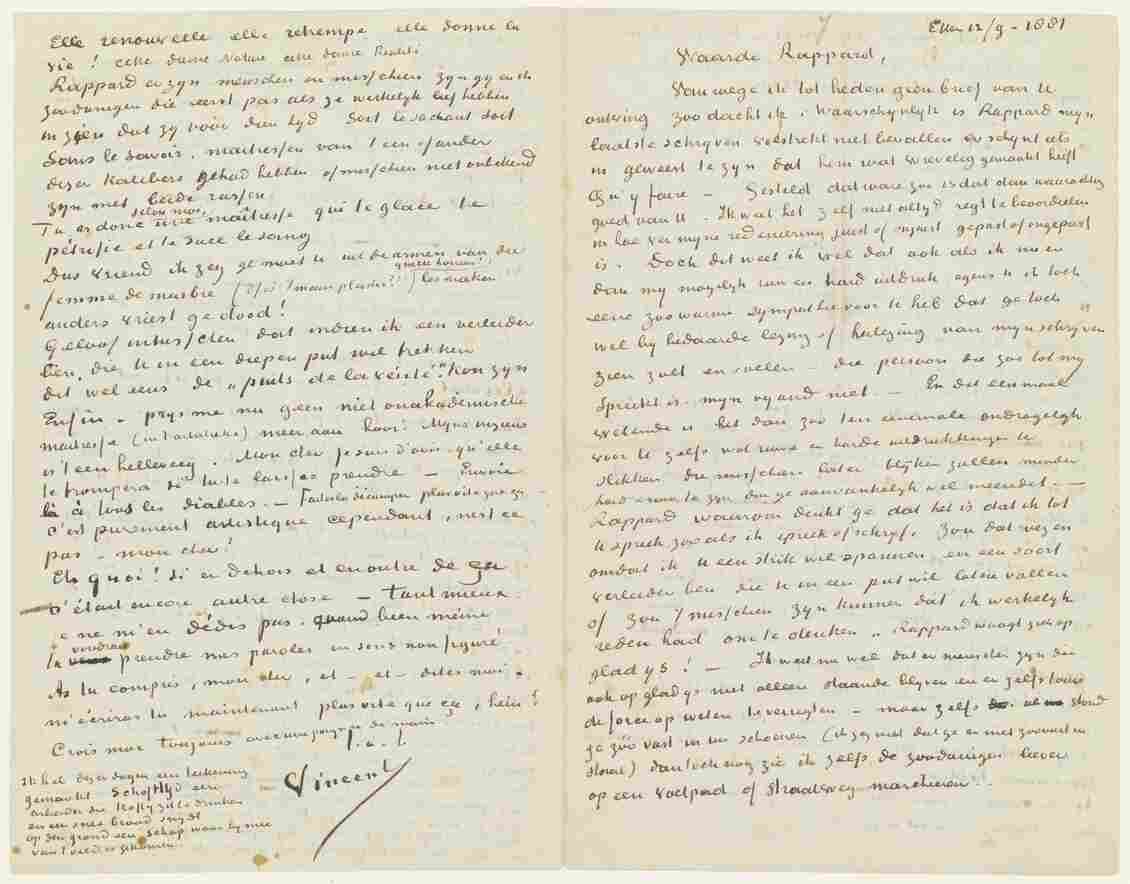 Elle renouvelle elle retrempe elle donne la
vie! Cette dame Nature cette dame Realité
Rappard er zyn menschen en misschien zyn gy en ik
zoodanigen die eerst pas als ze werkelyk lief hebben
in zien dat zy vóór dien tyd Soit le sachant soit
Sans le savoir, maitressen van 't een of ander
dezer Kalibers gehad hebben of misschien niet onbekend
zyn met beide rassen
Tu as donc selon moi une maîtresse qui te glace te
pétrifie et te suce le sang
Dus vriend ik zeg ge moet u uit de armen van die
femme de marbre (ofwel? main plastic?? quelle horreur!) los maken
anders vriest ge dood!
Geloof intusschen dat indien ik een verleider
ben, die u in een diepen put wil trekken
dit wel eens de "puits de la vérité" kon zyn
Enfin – prys me nu geen niet onakademische
maitresse (in 't artistieke) meer aan hoor! Myns inziens
is 't een helleveeg. Mon cher je suis d'avis qu'elle
te trompera si tu te laisses prendre – Envoie
là à tous les diables. – Fautala décamper plus vite que ça –
C'est purement artistique cependant, n'est ce
pas – mon cher!
Eh quoi! Si en dehors et en outre de ça
c'était encore autre chose – tant mieux.
Je ne m'en dédis pas. quand bien même
tu voudrais prendre mes paroles en sens non figuré
As tu compris, mon cher, et – et – dites moi,
m'écriras tu maintenant plus vite que ça, hein?
Crois moi toujours avec une poignée de main
t. à. t.
Vincent
Ik heb dezer dagen een teekening
gemaakt Schafttyd een
arbeider die koffy zit te drinken
en een snee brood snydt
op den grond een schop waar hy mee
van 't veld is gekomen.
Etten 12/9 – 1881
Waarde Rappard,
Vanwege ik tot heden geen brief van u
ontving zoo dacht ik. Waarschynlyk is Rappard myn
laatste schryven volstrekt niet bevallen er schynt iets
in geweest te zyn dat hem wat wrevelig gemaakt heeft
Qu'y faire – Gesteld dat ware zoo is dat dan waarachtig
goed van U. Ik weet het zelf niet altyd regt te beoordeelen
in hoe ver myne redeneering juist of onjuist gepast of ongepast
is. Doch dit weet ik wel dat ook als ik nu en
dan my mogelyk ruw en hard uitdruk egens u ik toch
eene zoo warme sympathie voor u heb dat ge toch
wel by bedaarde lezing of herlezing van myn schryven
zien zult en voelen – die persoon die zoo tot my
spreekt is myn vyand niet. – En dat eenmaal
wetende is het dan zoo ten eenemale ondragelyk
voor u zelfs wat ruwe en harde uitdrukkingen te
slikken die misschien later blyken zullen minder
hard & ruw te zyn dan ge aanvankelyk wel meendet. –
Rappard waarom denkt ge dat het is dat ik tot
u spreek zooals ik spreek of schryf. Zou dat wezen
omdat ik u een strik wil spannen en een soort
verleider ben die u in een put wil laten vallen
of zou 't misschien zyn kunnen dat ik werkelyk
reden had om te denken „Rappard waagt zich op
glad ys! – Ik weet nu wel dat er menschen zyn die
ook op glad ys niet alleen staande blyven en er zelfs tours
de force op weten te verrigten – maar zelfs al stond
ge zóó vast in uw schoenen (ik zeg niet dat ge er niet zoo vast in
stond) dan toch nog zie ik zelfs de zoodanigen liever
op een voetpad of straatweg marcheeren..